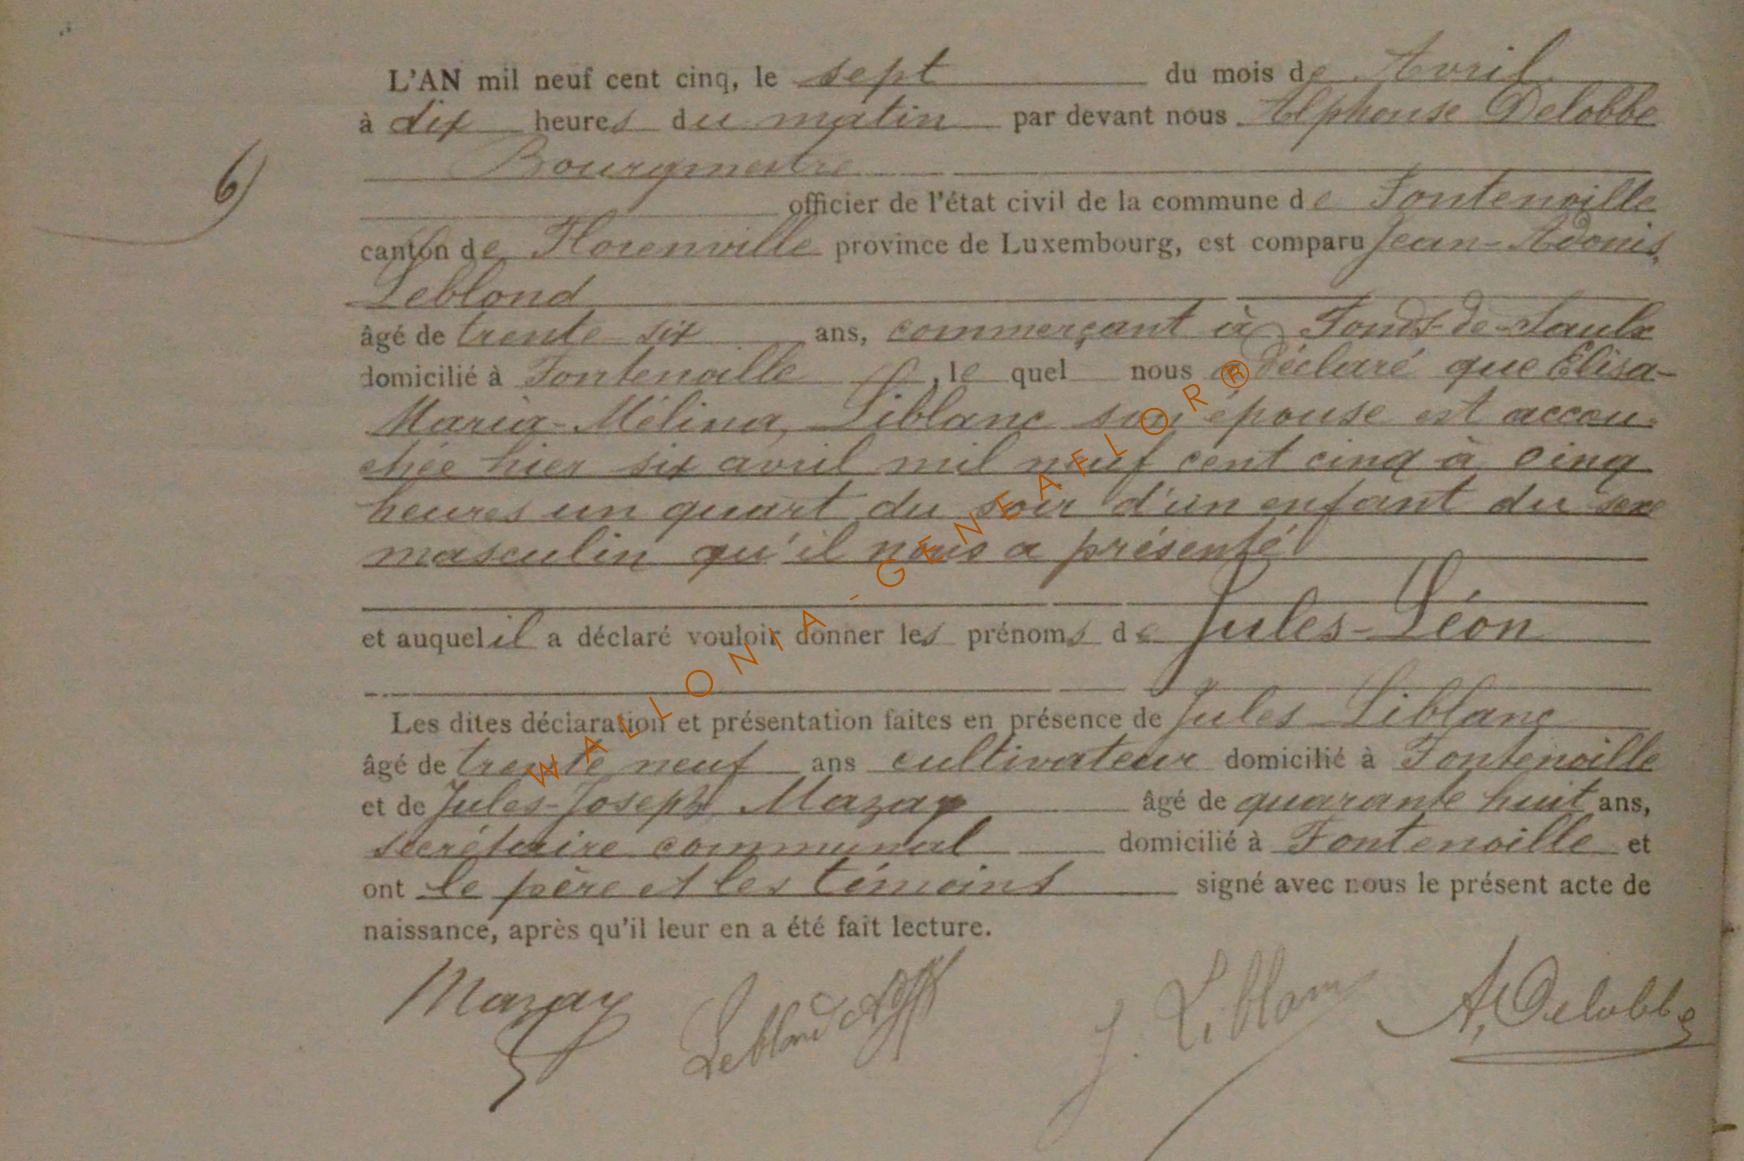 L'AN mil neuf cent cinq, le sept du mois de Avril
à dix heures du matin par devant nous Alphonse Delobbe
Bourgmestre
6)
officier de l'état civil de la commune de Fontenoille
canton de Florenville province de Luxembourg, est comparu Jean-Adonis,
Leblond
âgé de trente six ans, commerçant à Fonds-de-Saulx
domicilié à Fontenoille, le quel nous a déclaré que Elisa-
Maria-Mélina, Liblanc son épouse est accou-
chée hier six avril mil neuf cent cinq à cinq
heures un quart du soir d'un enfant du sexe
masculin qu'il nous a présenté
et auquel il a déclaré vouloir donner les prénoms de Jules-Léon
Les dites déclaration et présentation faites en présence de Jules Liblanc
âgé de trente neuf ans cultivateur domicilié à Fontenoille
et de Jules-Joseph Mazay âgé de quarante huit ans,
secrétaire communal domicilié à Fontenoille et
ont le père et les témoins signé avec nous le présent acte de
naissance, après qu'il leur en a été fait lecture.
Mazay Leblond J. Liblanc A. Delobbe
WALLONIA-GENEAFLOR®